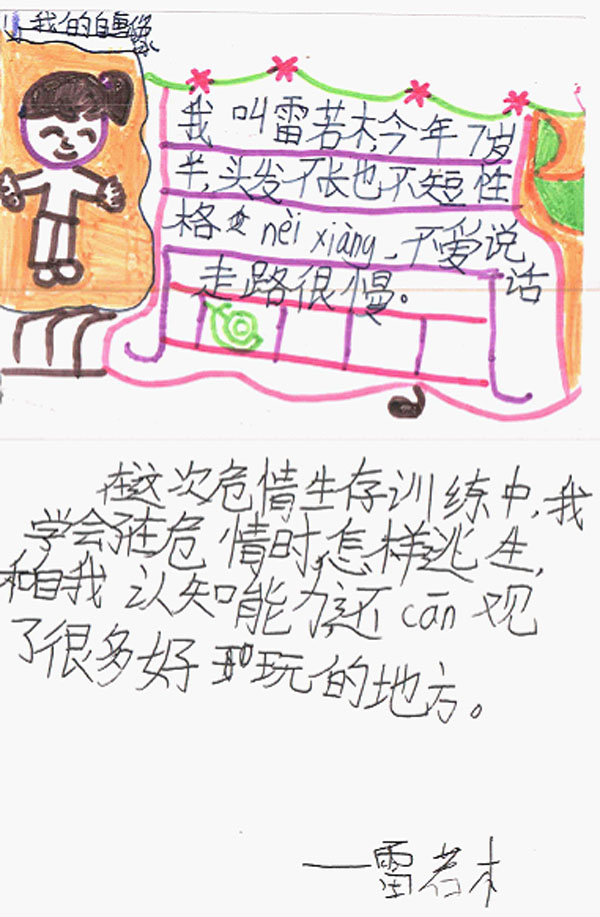 我的自画像
我叫雷若木,今年7岁
半,头发不长也不短性
格 nèi xiàng,不爱说话
走路很慢。
在这次危情生存训练中,我
学会了在危情时,怎样逃生,
和自我认知能力,还cān观
了很多好玩的地方。
——雷若木